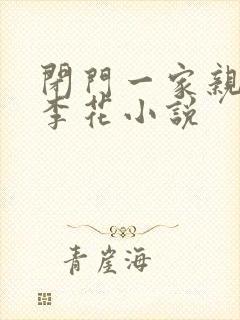 閉門一家親
李花小說
青崖海